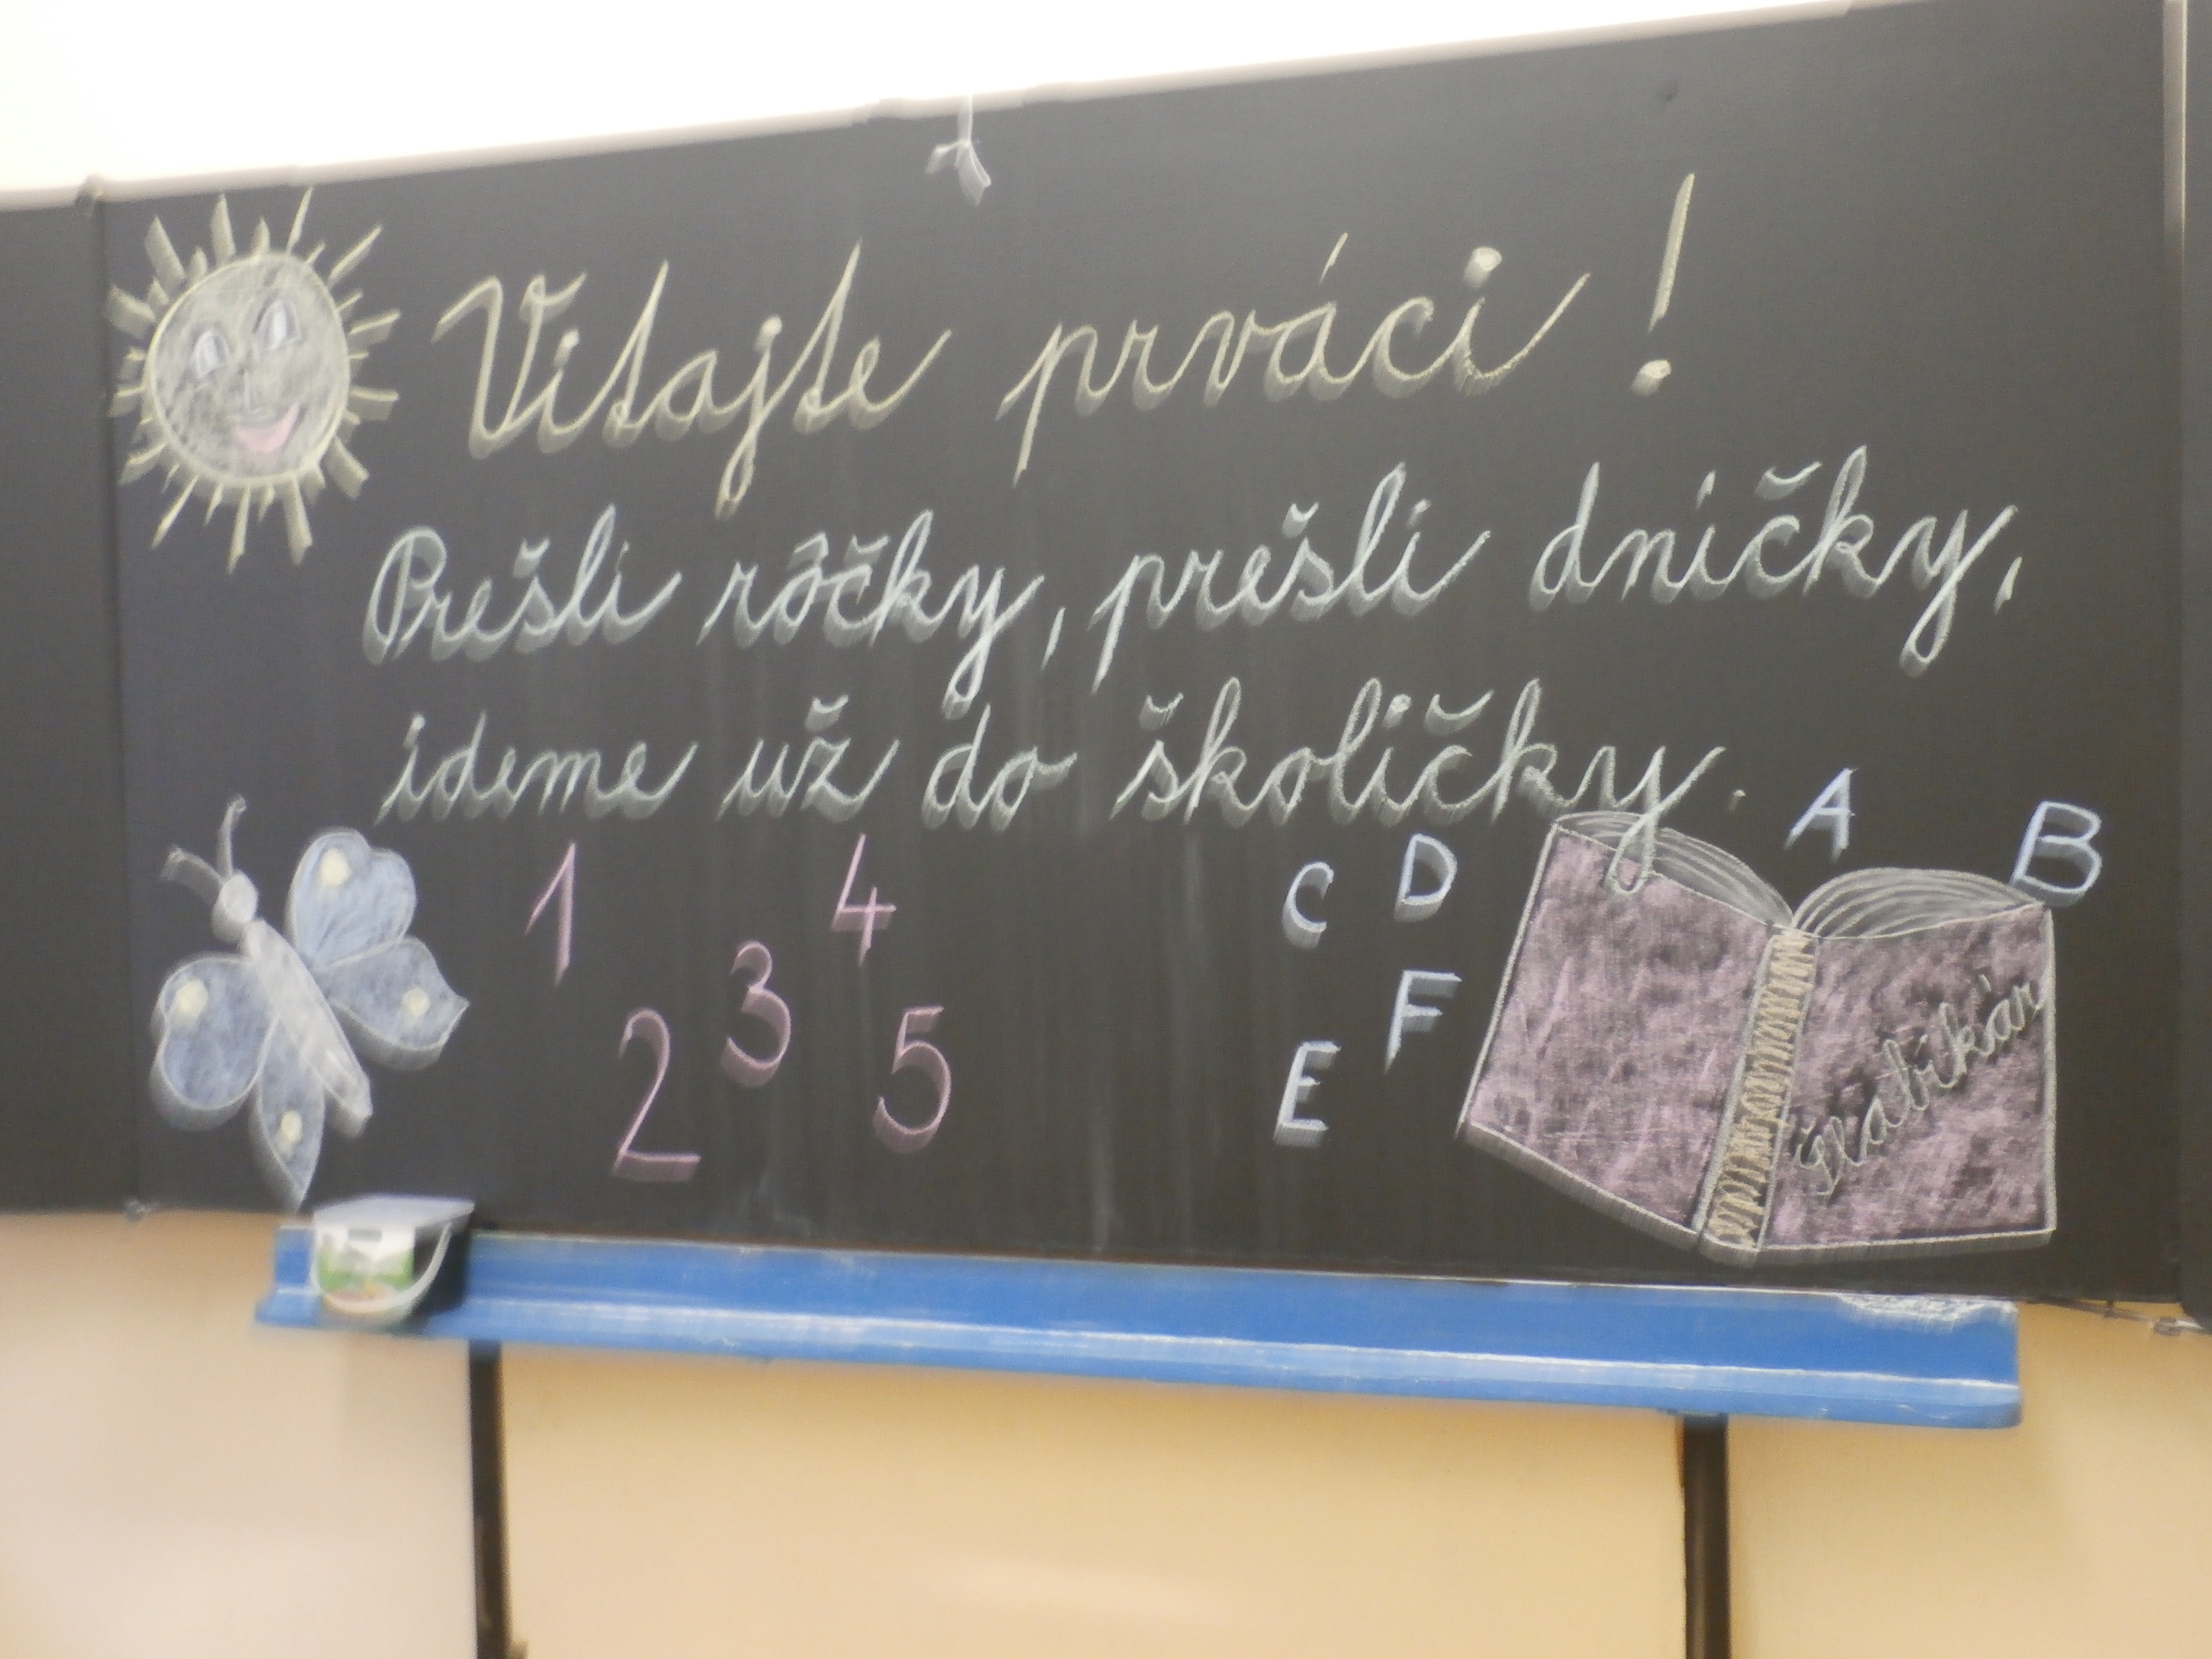 Vitajte prváci!
Prešli rôčky, prešli dníčky,
ideme už do školičky.
A B
1 4 C D
3 F
2 5 E
Šlabikár